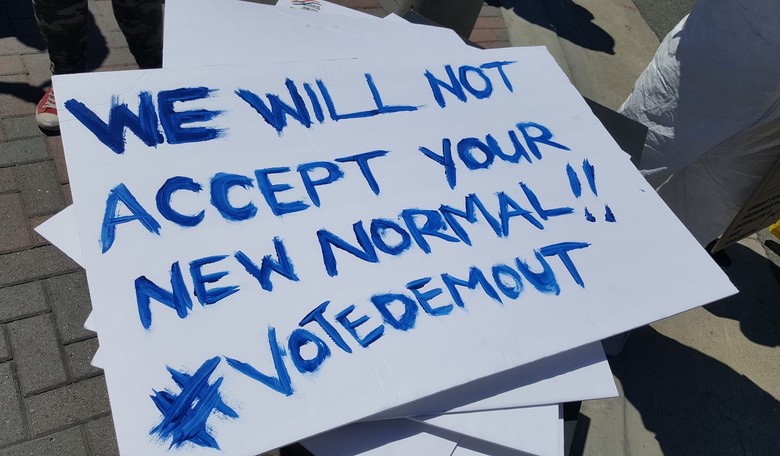 WE WILL NOT
ACCEPT YOUR
NEW NORMAL!!
#VOTEDEMOUT